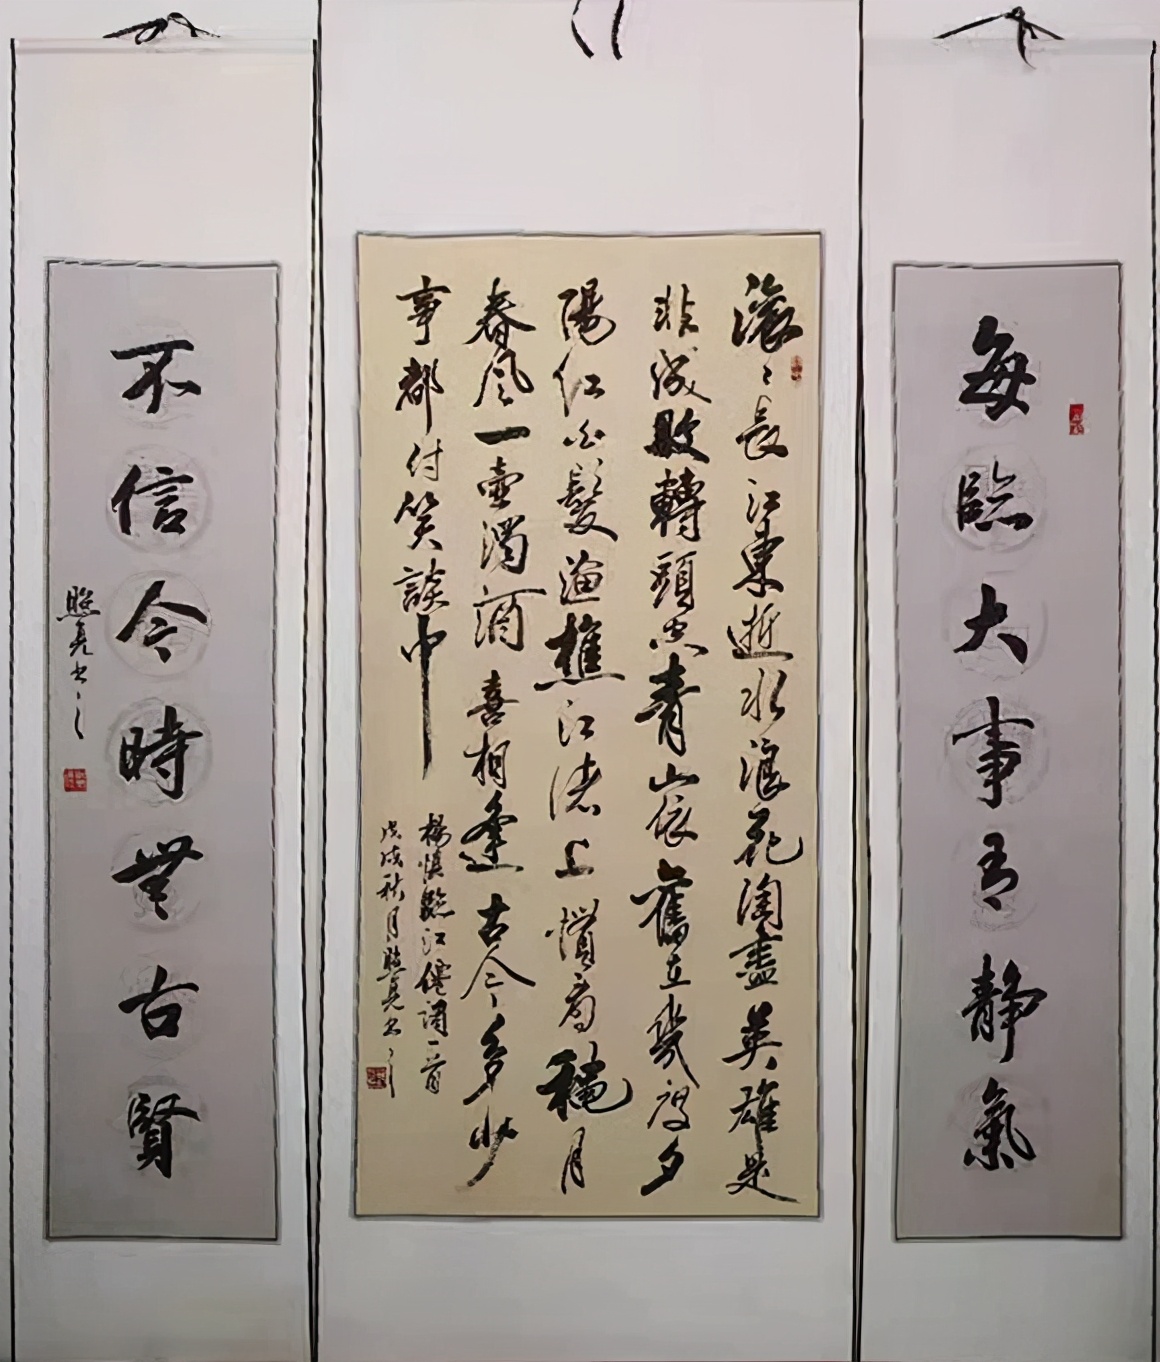 每臨大事有静氣
滚〻長江東逝水浪花淘盡英雄是
非成敗轉頭空青山依舊在幾度夕
陽紅白髮漁樵江渚上慣看穐月
春風一壺濁酒喜相逢古今多少
事都付笑談中
楊慎臨江僊词一首
戊戌秋月照亮书之
不信今時無古賢
照亮书之